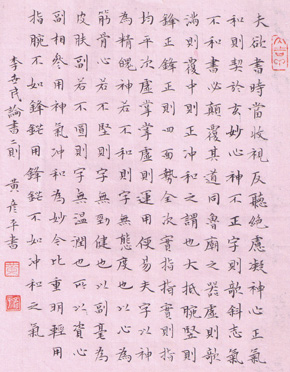 夫欲書時當收視反聽絕慮凝神心正氣
和則契於玄妙心神不正字則欹斜志氣
不和書必顛覆其道同魯廟之器虛則欹
滿則覆中則正沖和之謂也大抵腕豎則
鋒正鋒正則四面勢全次實指指實則指
均平次虛掌掌虛則運用便易夫字以神
為精魄神若不和則字無態度也以心為
筋骨心若不堅則字無勁健也以副毫為
皮膚副若不圓則字無溫潤也所以資心
副相參用神氣沖和為妙今比重明輕用
指腕不如鋒鋩用鋒鋩不如沖和之氣
李世民論書二則 黃彥平書